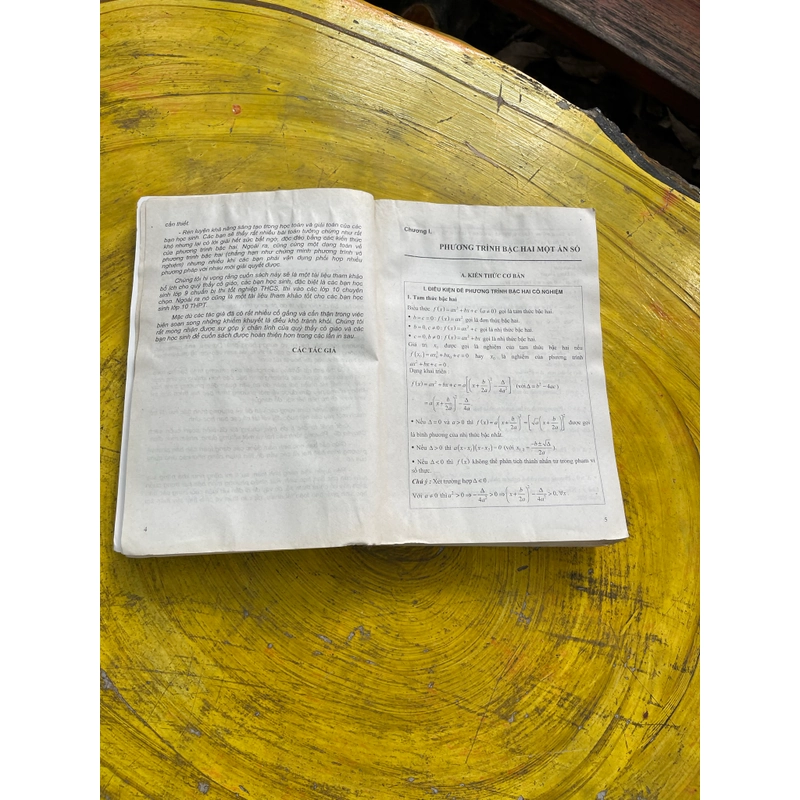 cần thiết.
- Rèn luyện khả năng sáng tạo trong học toán và giải toán của các
bạn học sinh. Các bạn sẽ thấy rất nhiều bài toán tưởng chừng như rất
khó nhưng lại có lời giải hết sức bất ngờ, độc đáo bằng các kiến thức
của phương trình bậc hai. Ngoài ra, cũng cùng một dạng toán về
phương trình bậc hai (chẳng hạn như chứng minh phương trình vô
nghiệm) nhưng nhiều khi các bạn phải vận dụng phối hợp nhiều
phương pháp với nhau mới giải quyết được.
Chúng tôi hi vọng rằng cuốn sách này sẽ là một tài liệu tham khảo
bổ ích cho quý thầy cô giáo, các bạn học sinh, đặc biệt là các bạn học
sinh lớp 9 chuẩn bị thi tốt nghiệp THCS, thi vào các lớp 10 chuyên
chọn. Ngoài ra nó cũng là một tài liệu tham khảo tốt cho các bạn học
sinh lớp 10 THPT.
Mặc dù các tác giả đã có rất nhiều cố gắng và cẩn thận trong việc
biên soạn song những khiếm khuyết là điều khó tránh khỏi. Chúng tôi
rất mong nhận được sự góp ý chân tình của quý thầy cô giáo và các
bạn học sinh để cuốn sách được hoàn thiện hơn trong các lần in sau.
CÁC TÁC GIẢ
4
Chương I.
PHƯƠNG TRÌNH BẬC HAI MỘT ẨN SỐ
A. KIẾN THỨC CƠ BẢN
I. ĐIỀU KIỆN ĐỂ PHƯƠNG TRÌNH BẬC HAI CÓ NGHIỆM
1. Tam thức bậc hai
Biểu thức f(x)=ax²+bx+c (a≠0) gọi là tam thức bậc hai.
• b=c=0: f(x)=ax² gọi là đơn thức bậc hai.
• b=0, c≠0: f(x)=ax²+c gọi là nhị thức bậc hai.
• c=0, b≠0: f(x)=ax²+bx gọi là nhị thức bậc hai.
Giá trị x₀ được gọi là nghiệm của tam thức bậc hai nếu
f(x₀)=ax₀²+bx₀+c=0 hay x₀ là nghiệm của phương trình
ax²+bx+c=0.
Dạng khai triển
f(x)=ax²+bx+c=a[(x+b/2a)²-Δ/4a²] (với Δ=b²-4ac)
=a(x+b/2a)²-Δ/4a
• Nếu Δ=0 và a>0 thì f(x)=a(x+b/2a)²=[√a(x+b/2a)]² được gọi
là bình phương của nhị thức bậc nhất.
• Nếu Δ>0 thì a(x-x₁)(x-x₂)=0 (với x₁,₂=(-b±√Δ)/2a).
• Nếu Δ<0 thì f(x) không thể phân tích thành nhân tử trong phạm vi
số thực.
Chú ý: Xét trường hợp Δ<0
Với a≠0 thì a²>0⇒-Δ/4a²>0⇒(x+b/2a)²-Δ/4a²>0,∀x
5